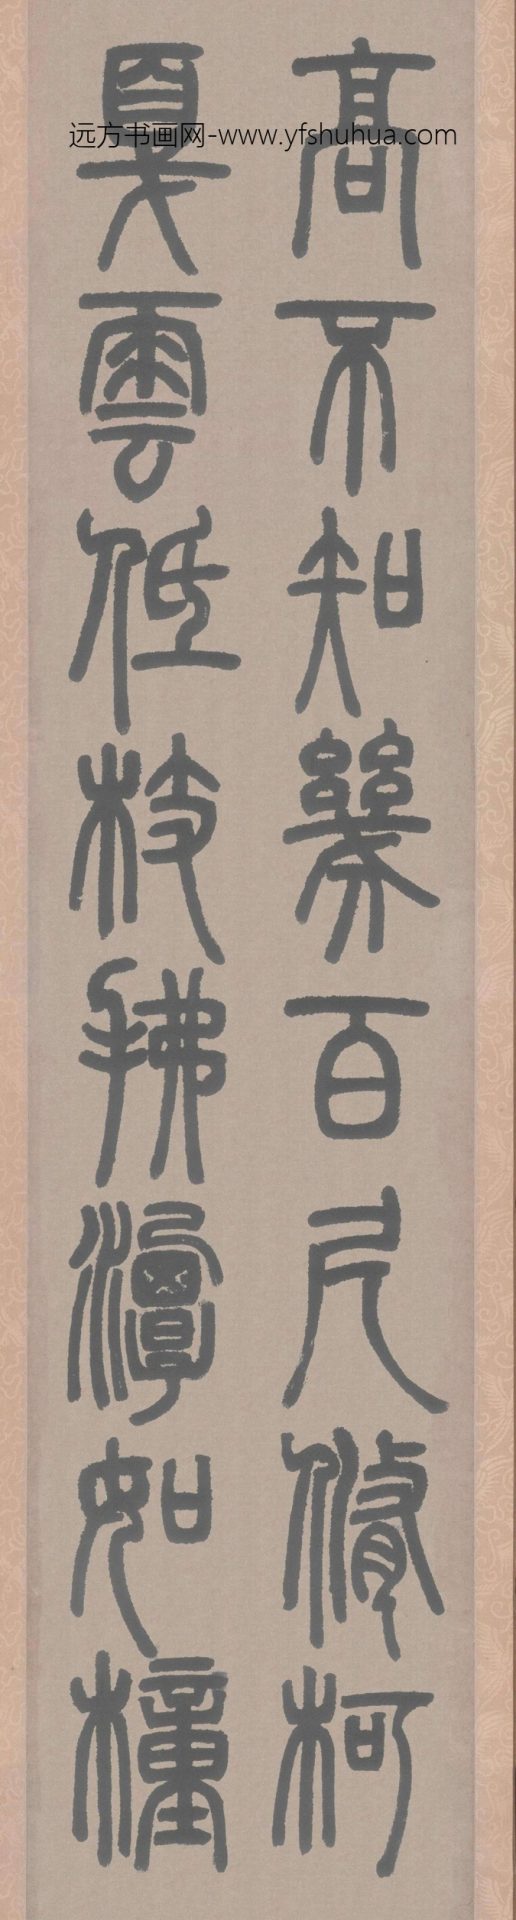 远方书画网-www.yfshuhua.com
高不知幾百尺脩柯
戛雲低枝拂潭如橦